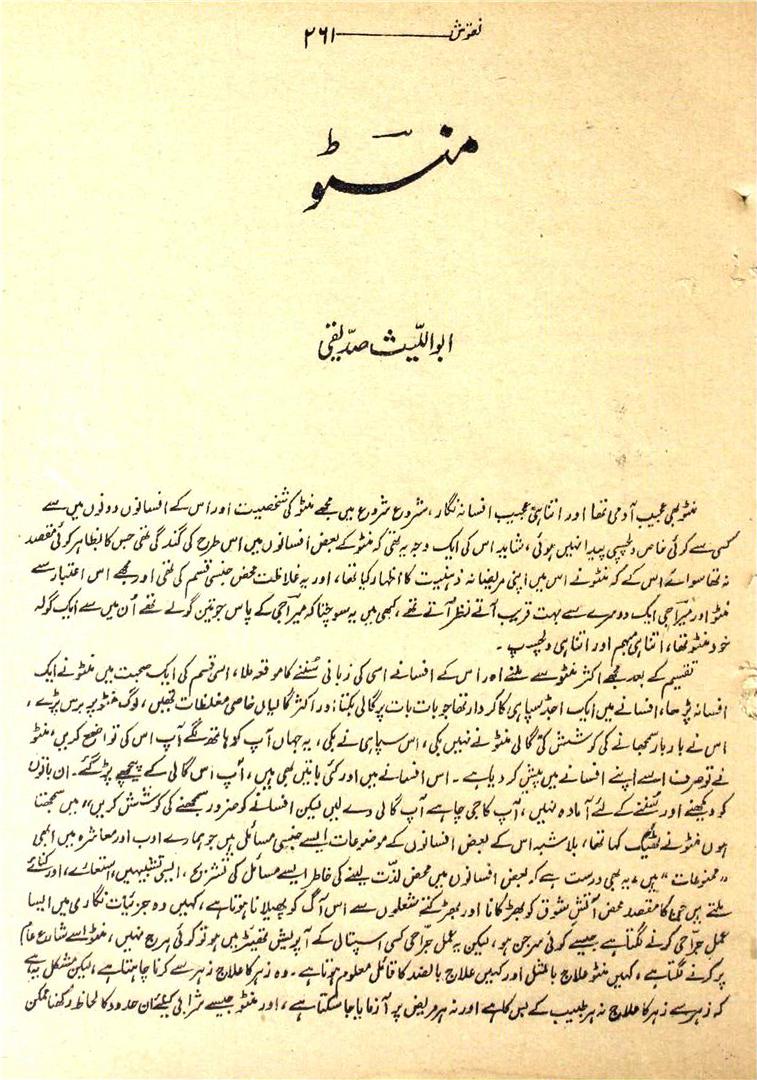 نقوش ——— ۲۶۱
منٹو
ابواللّیث صدّیقی
منٹو بھی عجیب آدمی تھا اور اتنا ہی عجیب افسانہ نگار، شروع شروع میں مجھے منٹو کی شخصیت اور اس کے افسانوں دونوں میں سے
کسی سے کوئی خاص دلچسپی پیدا نہیں ہوئی، شاید اس کی ایک وجہ یہ تھی کہ منٹو کے بعض افسانوں میں اس طرح کی گندگی تھی جس کا بظاہر کوئی مقصد
نہ تھا سوائے اس کے کہ منٹو نے اس میں اپنی مریضانہ ذہنیت کا اظہار کیا تھا، اور یہ غلاظت محض جنسی قسم کی تھی اور مجھے اس اعتبار سے
منٹو اور میراجی ایک دوسرے سے بہت قریب آتے نظر آتے تھے، کبھی میں یہ سوچتا کہ میراجی کے پاس جو تین گولے تھے اُن میں سے ایک گولہ
خود منٹو تھا، اتنا ہی مبہم اور اتنا ہی دلچسپ ۔
تقسیم کے بعد مجھے اکثر منٹو سے ملنے اور اس کے افسانے اسی کی زبانی سُننے کا موقعہ ملا، اسی قسم کی ایک صحبت میں منٹو نے ایک
افسانہ پڑھا، افسانے میں ایک اجڈ سپاہی کا کردار تھا جو بات بات پر گالی بکتا اور اکثر گالیاں خاصی مغلظات تھیں، لوگ منٹو پر برس پڑے،
اس نے بار بار سمجھانے کی کوشش کی گالی منٹو نے نہیں بکی، اس سپاہی نے بکی، یہ جہاں آپ کو ہاتھ لگے آپ اس کی تواضع کریں، منٹو
نے تو صرف اسے اپنے افسانے میں پیش کر دیا ہے ۔ اس افسانے میں اور کئی باتیں بھی ہیں، آپ اس گالی کے پیچھے پڑ گئے ۔ ان باتوں
کو دیکھنے اور سُننے کے لئے آمادہ نہیں، آپ کا جی چاہے آپ گالی دے لیں لیکن افسانے کو ضرور سمجھنے کی کوشش کریں“ میں سمجھتا
ہوں منٹو نے ٹھیک کہا تھا، بلاشبہ اس کے بعض افسانوں کے موضوعات ایسے جنسی مسائل ہیں جو ہمارے ادب اور معاشرہ میں ابھی
”ممنوعات“ ہیں، یہ بھی درست ہے کہ بعض افسانوں میں محض لذّت لینے کی خاطر ایسے مسائل کی تشریح، ایسی تشبیہیں، استعارے، اور کنائے
ملتے ہیں جن کا مقصد محض آتشِ شوق کو بھڑکانا اور بھڑکتے شعلوں سے اس آگ کو پھیلانا ہوتا ہے، کہیں وہ جزئیات نگاری میں ایسا
عملِ جرّاحی کرنے لگتا ہے جیسے کوئی سرجن ہو، لیکن یہ عمل جرّاحی کسی اسپتال کے آپریشن تھیٹر میں ہو تو کوئی ہرج نہیں، منٹو اسے شارع عام
پر کرنے لگتا ہے، کہیں منٹو علاج بالمثل اور کہیں علاج بالضد کا قائل معلوم ہوتا ہے ۔ وہ زہر کا علاج زہر سے کرنا چاہتا ہے، لیکن مشکل یہ ہے
کہ زہر سے زہر کا علاج نہ ہر طبیب کے بس کا ہے اور نہ ہر مریض پر آزمایا جا سکتا ہے، اور منٹو جیسے شرابی کیلئے ان حدود کا لحاظ رکھنا ممکن